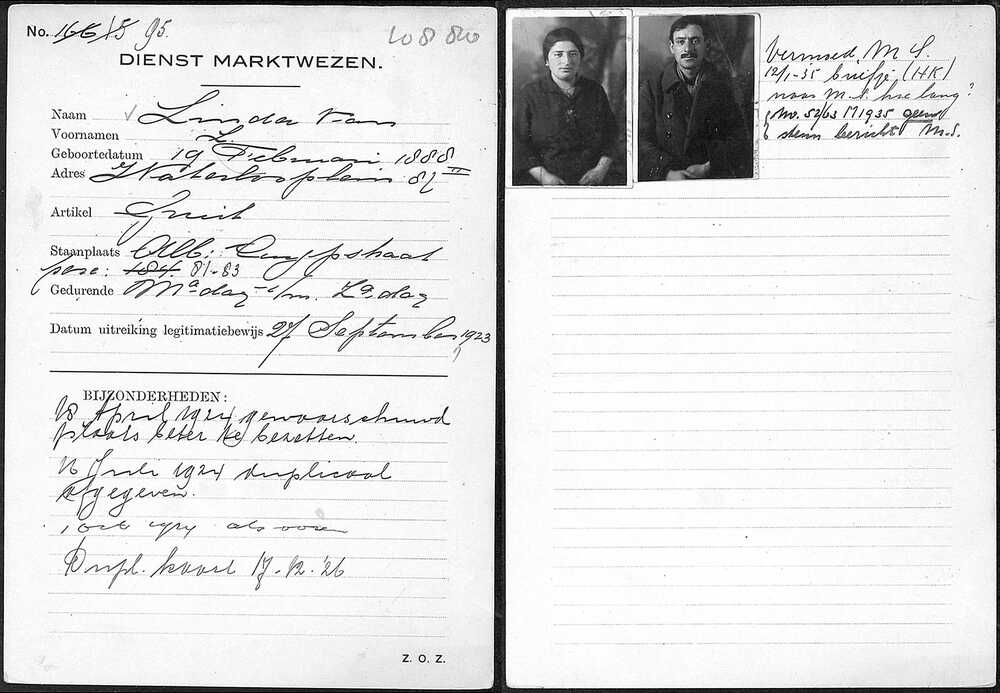 No. 166 15 95.
108 820
DIENST MARKTWEZEN.
Naam Linda van
Voornamen L.
Geboortedatum 19 Februari 1888
Adres Waterlooplein 82 II
Artikel Fruit
Staanplaats Alb: Cuypstraat
perc: 184. 81-83
Gedurende Madag t/m. Zadag
Datum uitreiking legitimatiebewijs 27 September 1923
BIJZONDERHEDEN:
18 April 1924 gewaarschuwd
plaats beter te bezetten.
16 Juli 1924 duplicaat
afgegeven.
1 oct 1924 als voren
Dupl. kaart 17-12-'26
Z. O. Z.
Vermoed. M. S.
12/1-35 briefje (HK)
naar M. S. hoe lang?
No. 52/63 M 1935 geen
steun bericht M.S.